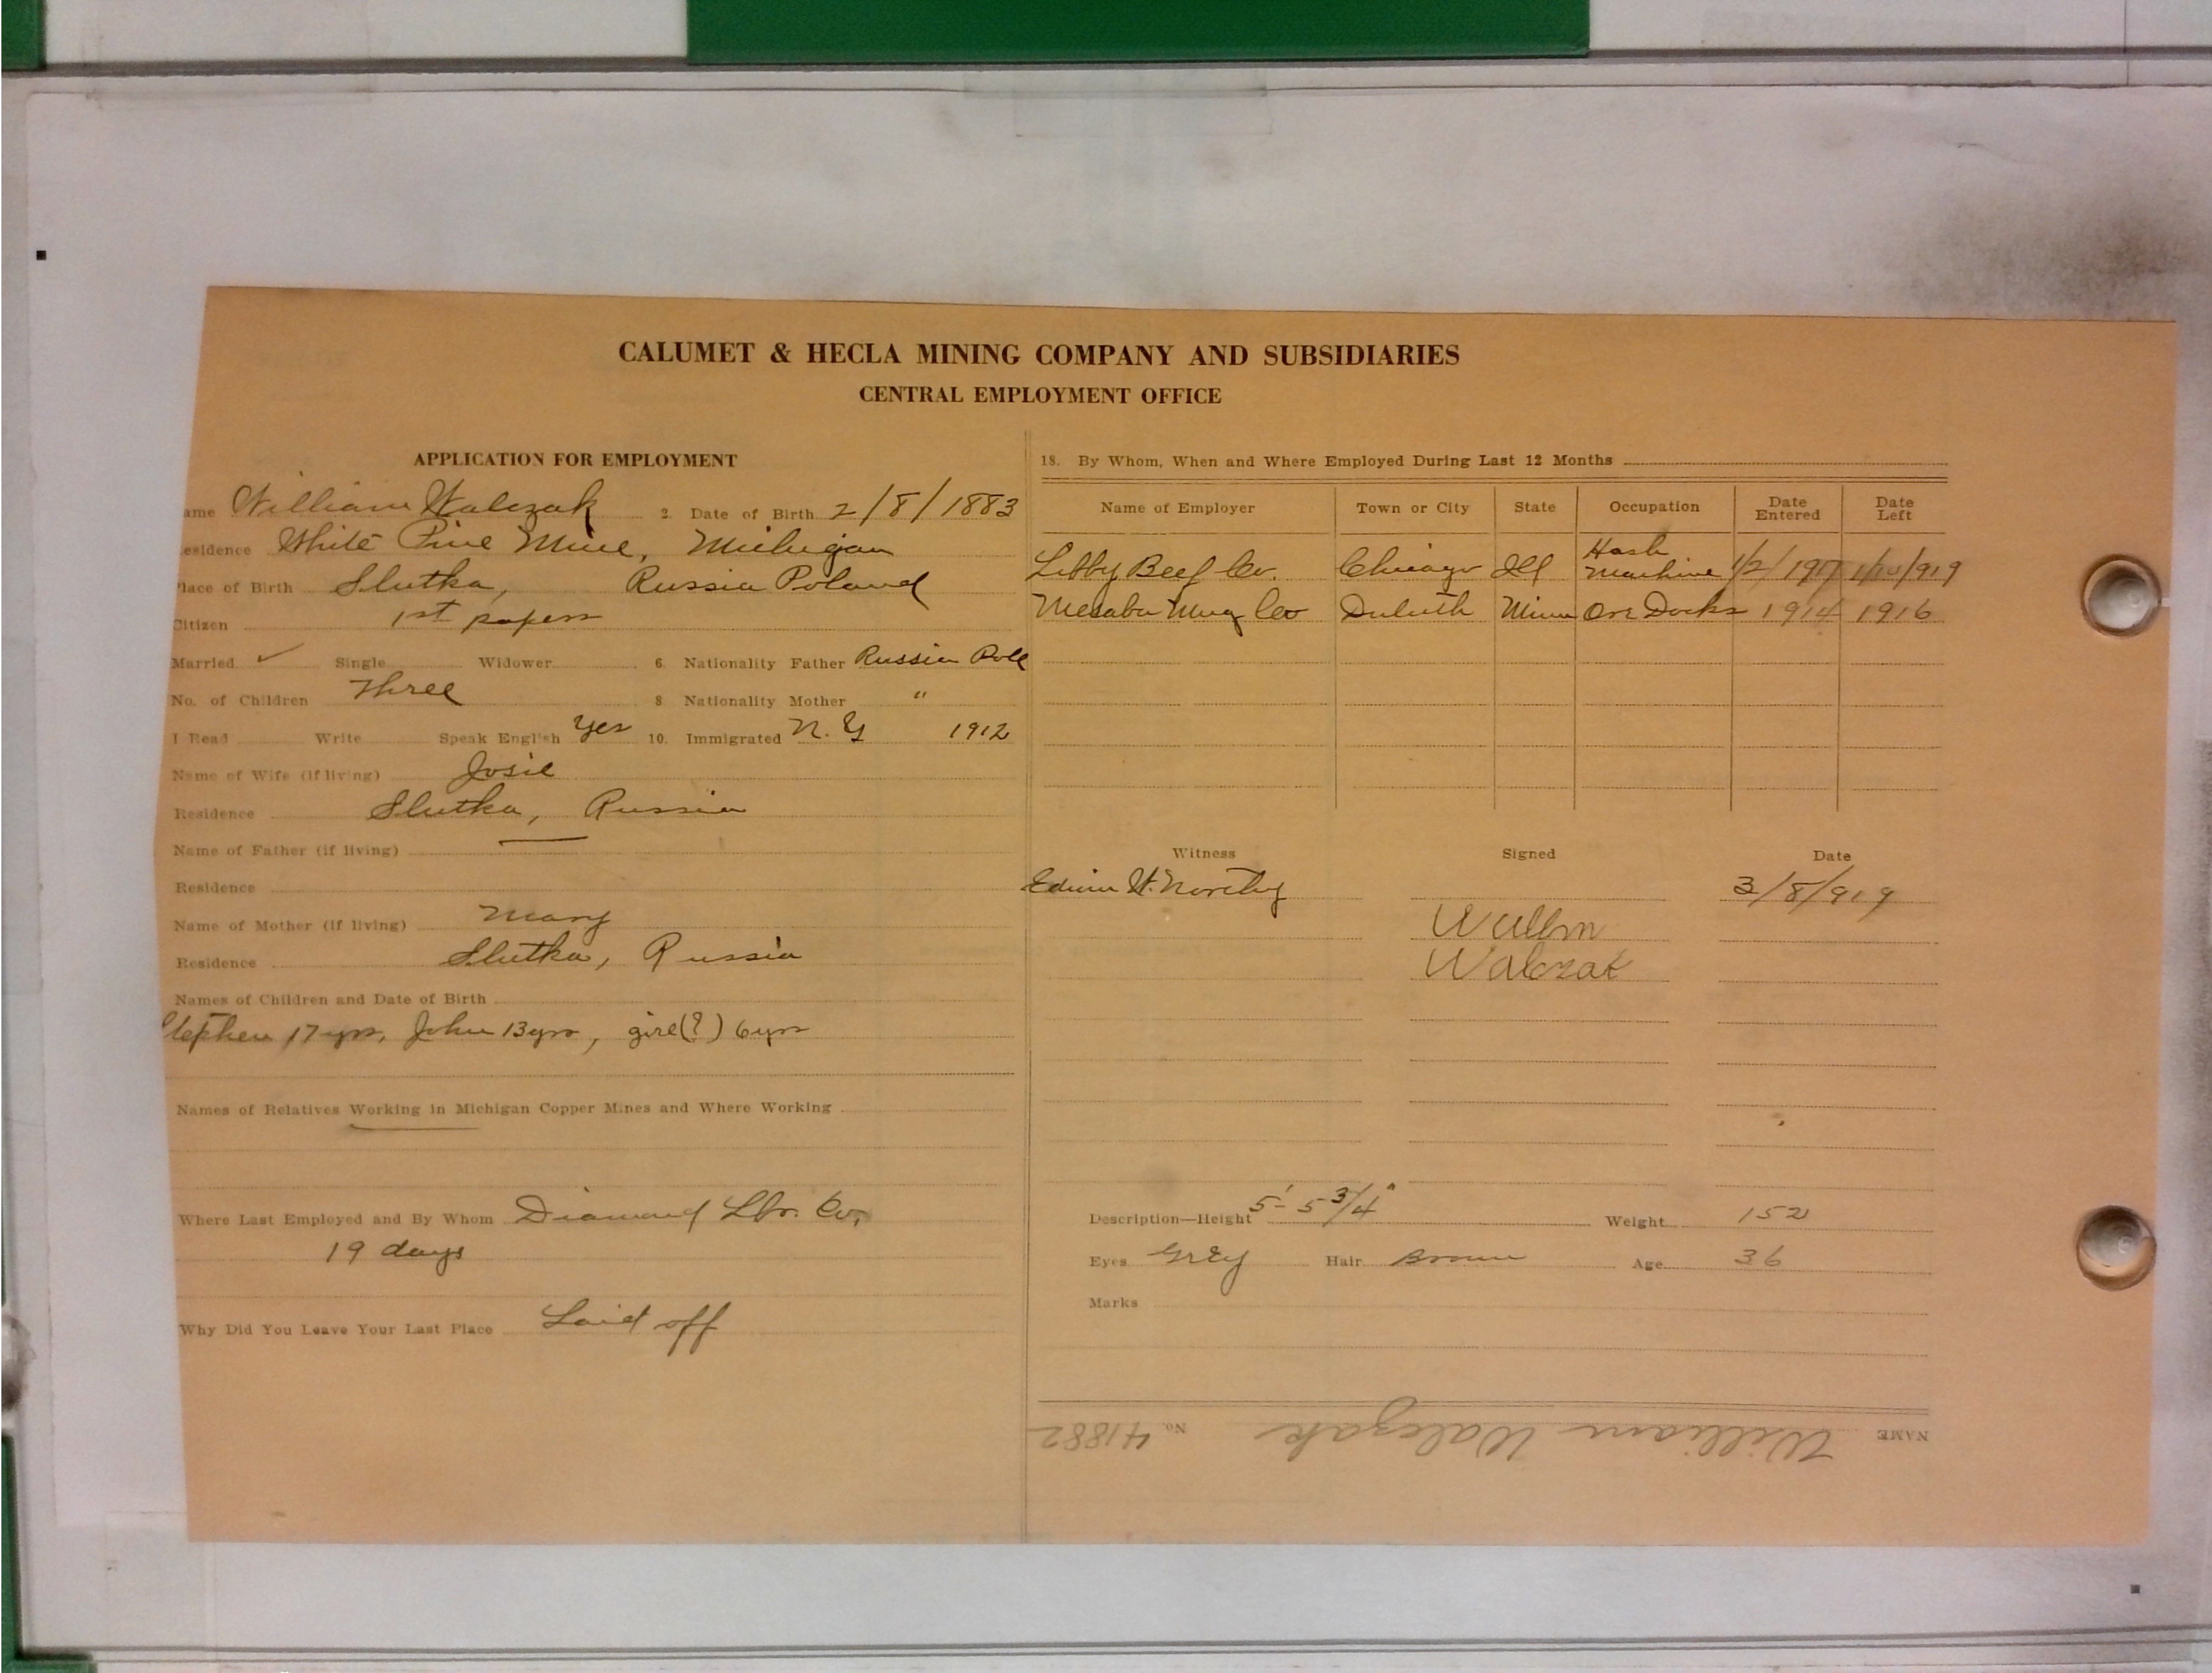 CALUMET & HECLA MINING COMPANY AND SUBSIDIARIES
CENTRAL EMPLOYMENT OFFICE
APPLICATION FOR EMPLOYMENT
ame William Walczak 2. Date of Birth 2/8/1883
esidence White Pine Mine, Michigan
lace of Birth Slutka, Russia Poland
Citizen 1st papers
Married ✓ Single Widower 6. Nationality Father Russia Pole
No. of Children Three 8 Nationality Mother "
I Read Write Speak English Yes 10. Immigrated N.Y 1912
Name of Wife (if living) Josie
Residence Slutka, Russia
Name of Father (if living) —
Residence
Name of Mother (if living) Mary
Residence Slutka, Russia
Names of Children and Date of Birth
Stephen 17 yrs, John 13 yrs, girl(?) 6 yrs
Names of Relatives Working in Michigan Copper Mines and Where Working
Where Last Employed and By Whom Diamond Lbr. Co.
19 days
Why Did You Leave Your Last Place Laid off
18. By Whom, When and Where Employed During Last 12 Months
Name of Employer Town or City State Occupation Date Entered Date Left
Libby Beef Co. Chicago Ill Hash Machine 1/2/1917 1/10/919
Mesaba Mng Co Duluth Minn Ore Docks 1914 1916
Witness Signed Date
Edwin 3/8/919
Wullm
Walczak
Description—Height 5'- 5 3/4" Weight 152
Eyes Grey Hair Brown Age 36
Marks
NAME William Walczak No. 41882